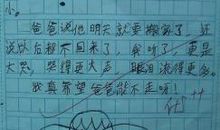 小。
爸爸说他明天就要搬家了，还
说以后都不回来了，我听了，更是
大哭，哭得更大声，眼泪流得更多。
我真希望爸爸能不走呀！